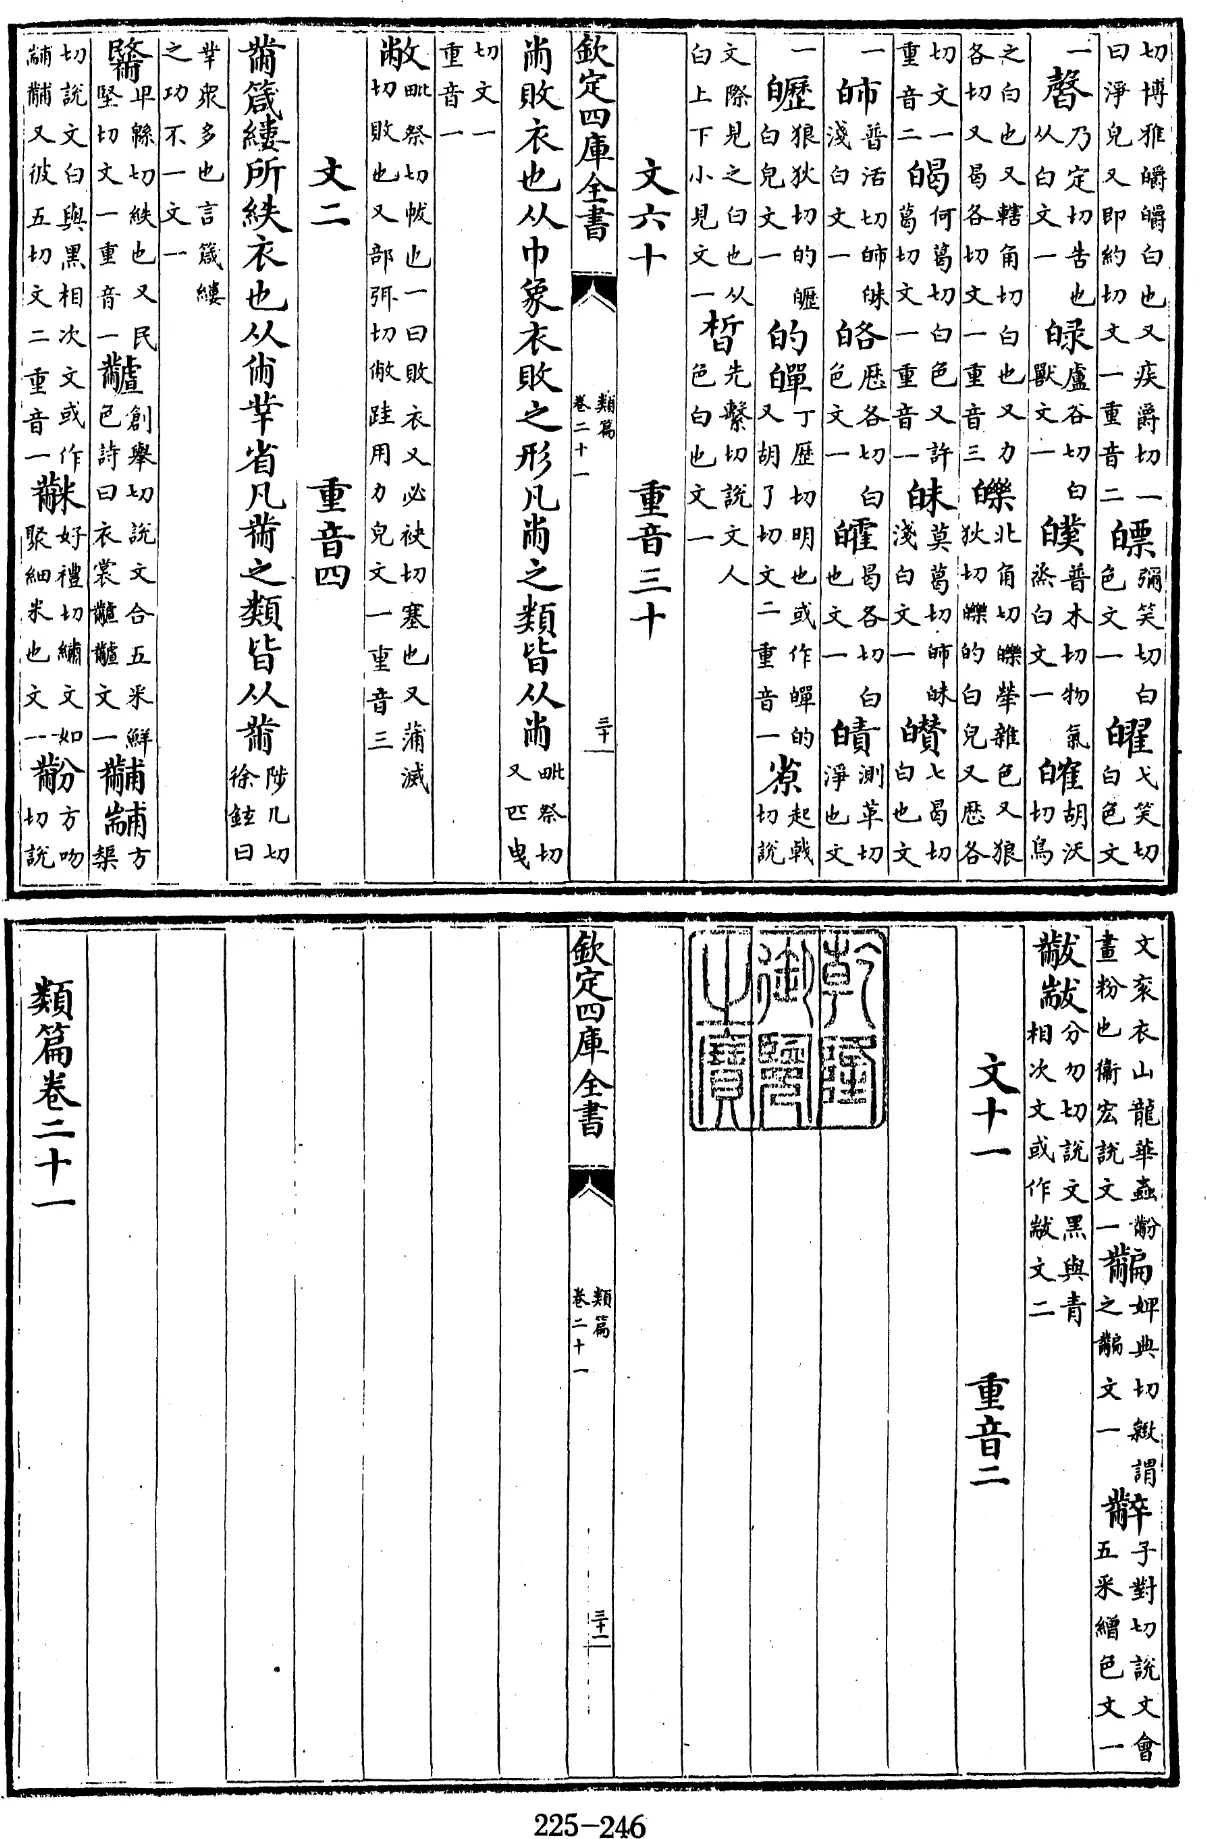 切博雅皭皭白也又疾爵切一曰淨皃又即約切文一重音二彌笑切白色文一弋笑切白色文
一乃定切告也从白文一盧谷切白獸文一普木切物氣蒸白文一胡沃切鳥
之白也又轄角切白也又力各切又曷各切文一重音三皪北角切皪犖雜色又狼狄切皪的白皃又歷各
切文一重音二何葛切白色又許葛切文一重音一莫葛切淺白文一七曷切白也文
一普活切淺白文一歷各切白色文一皬曷各切白也文一皟測革切淨也文
一狼狄切的白皃文一的丁歷切明也或作的又胡了切文二重音一𡭴起戟切說
文際見之白也从白上下小見文一皙先繫切說文人色白也文一
文六十 重音三十
欽定四庫全書 類篇卷二十一 三十一
㡀敗衣也从巾象衣敗之形凡㡀之類皆从㡀毗祭切又匹曳
切文一重音一
敝毗祭切帗也一曰敗衣又必袂切塞也又蒲滅切敗也又部弭切敝跬用力皃文一重音三
文二 重音四
黹箴縷所紩衣也从㡀丵省凡黹之類皆从黹陟几切徐鉉曰
丵衆多也言箴縷之功不一文一
卑緜切紩也又民堅切文一重音一創舉切說文合五采鮮色詩曰衣裳文一黼方榘
切說文白與黑相次文或作黼又彼五切文二重音一好禮切繡文如聚細米也文一黺方吻切說
文衮衣山龍華蟲黺畫粉也衞宏說文一㛹典切緻謂之文一子對切說文會五采繒色文一
黻分勿切說文黑與青相次文或作文二
文十一 重音二
乾隆御覽之寶
欽定四庫全書 類篇卷二十一 三十二
類篇卷二十一
225-246